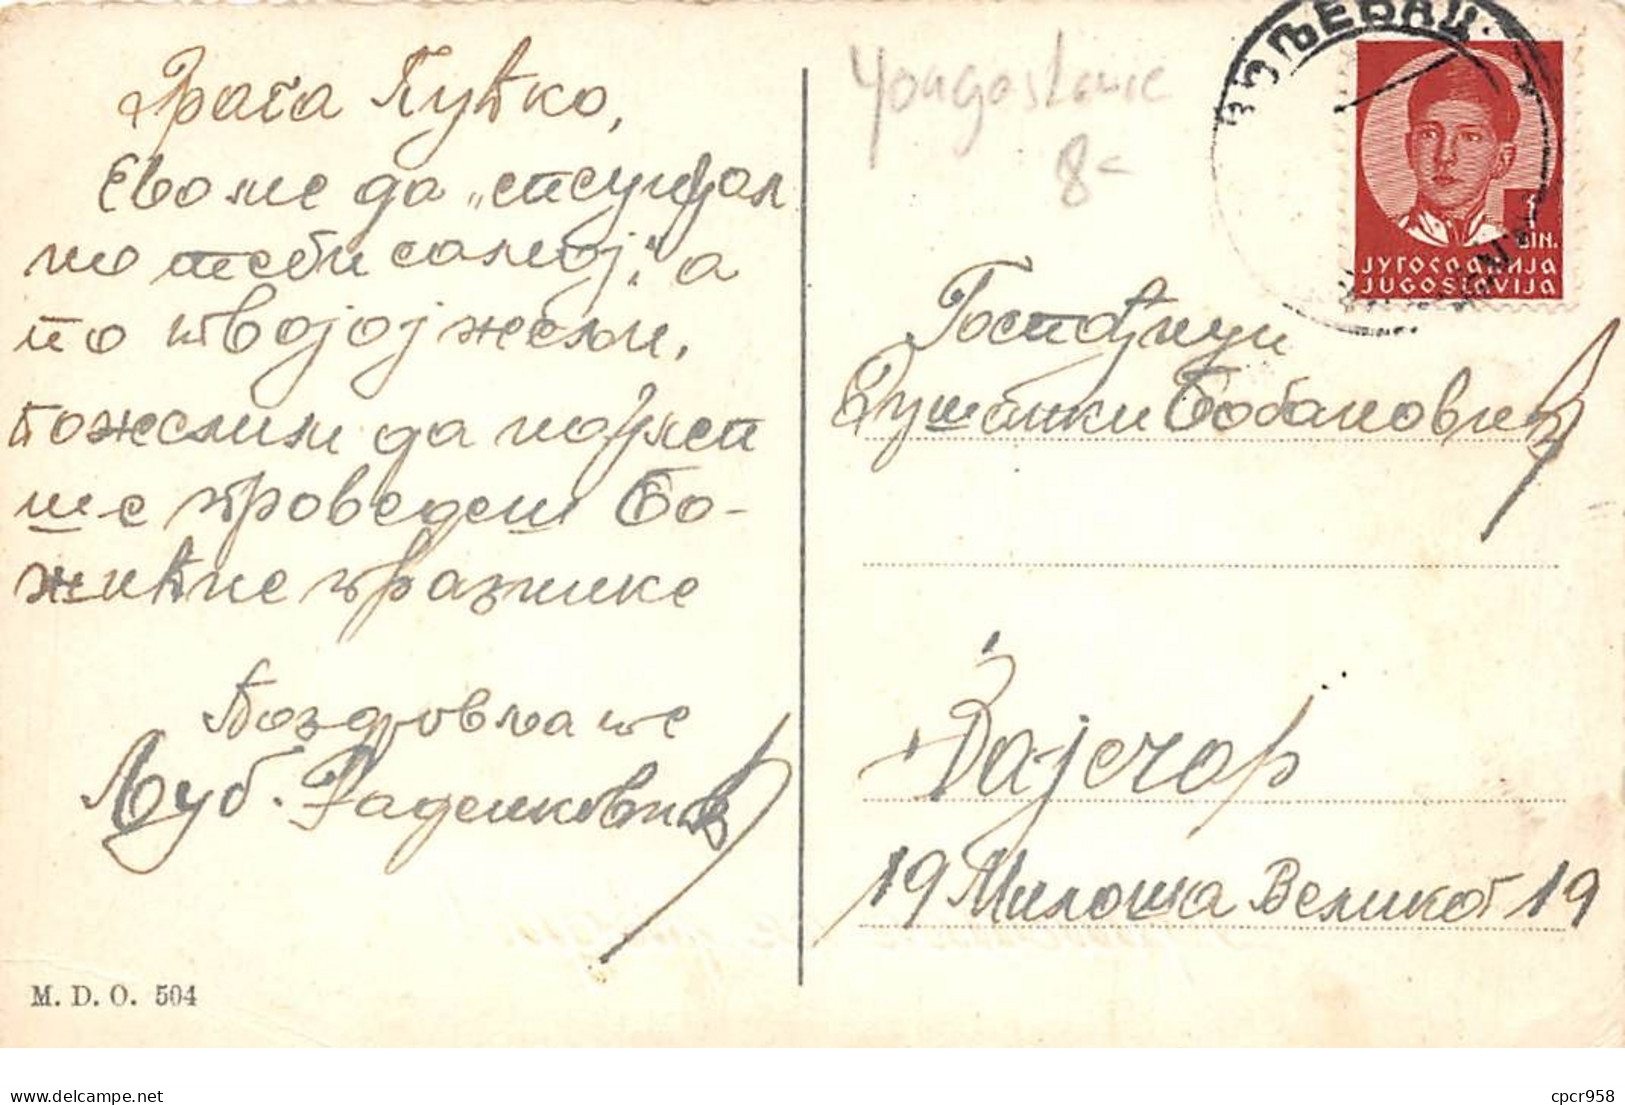 Драга Пућко,
Ево ме да „стуцдал
по теби самој," а
по твојој жељи,
Пожелим да најлеп
ше проведеш Бо-
жићне празнике
Поздравља те
Љуб. Раденковић
M. D. O. 504
Yougoslavie
8-
КЊАЖЕВАЦ
1
DIN.
ЈУГОСЛАВИЈА
JUGOSLAVIJA
Госпођици
Душанки Бобановић
Зајечар
19 Милоша Великог 19
delcampe.net
cpcr958